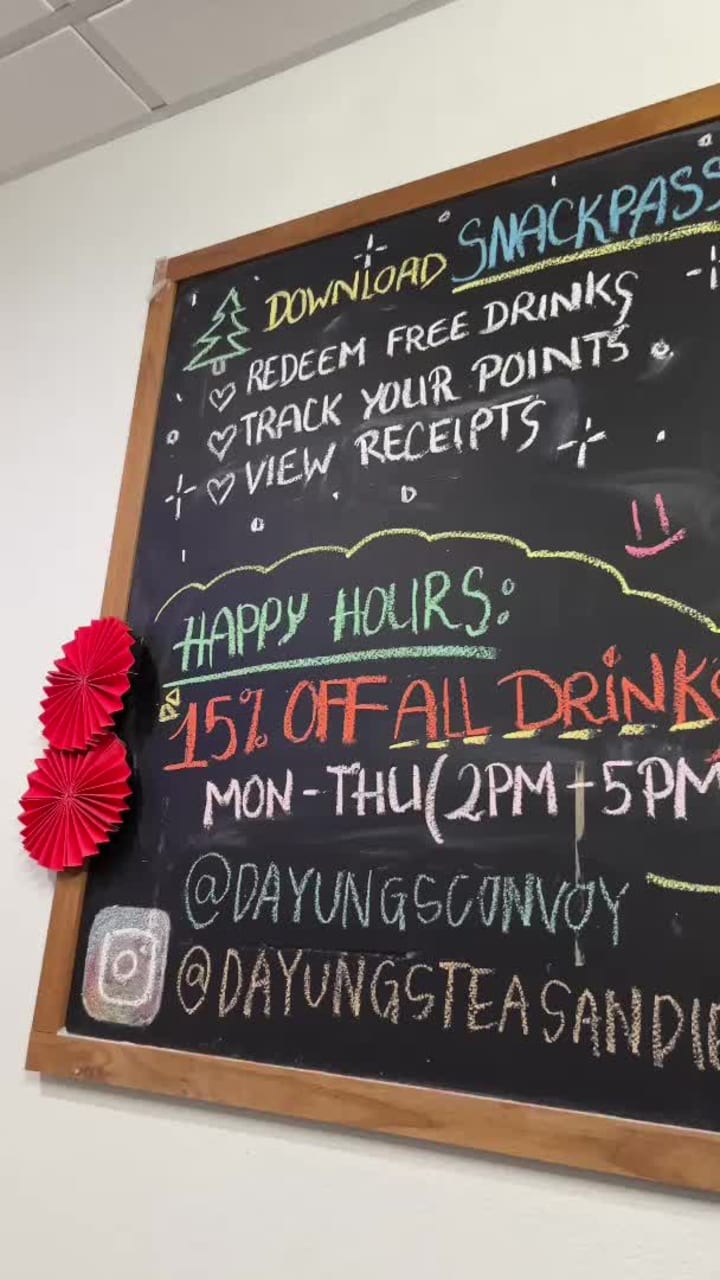 DOWNLOAD SNACKPASS
REDEEM FREE DRINKS
TRACK YOUR POINTS
VIEW RECEIPTS
HAPPY HOURS:
15% OFF ALL DRINKS
MON-THU(2PM-5PM
@DAYUNGSCONVOY
@DAYUNGSTEASANDIE